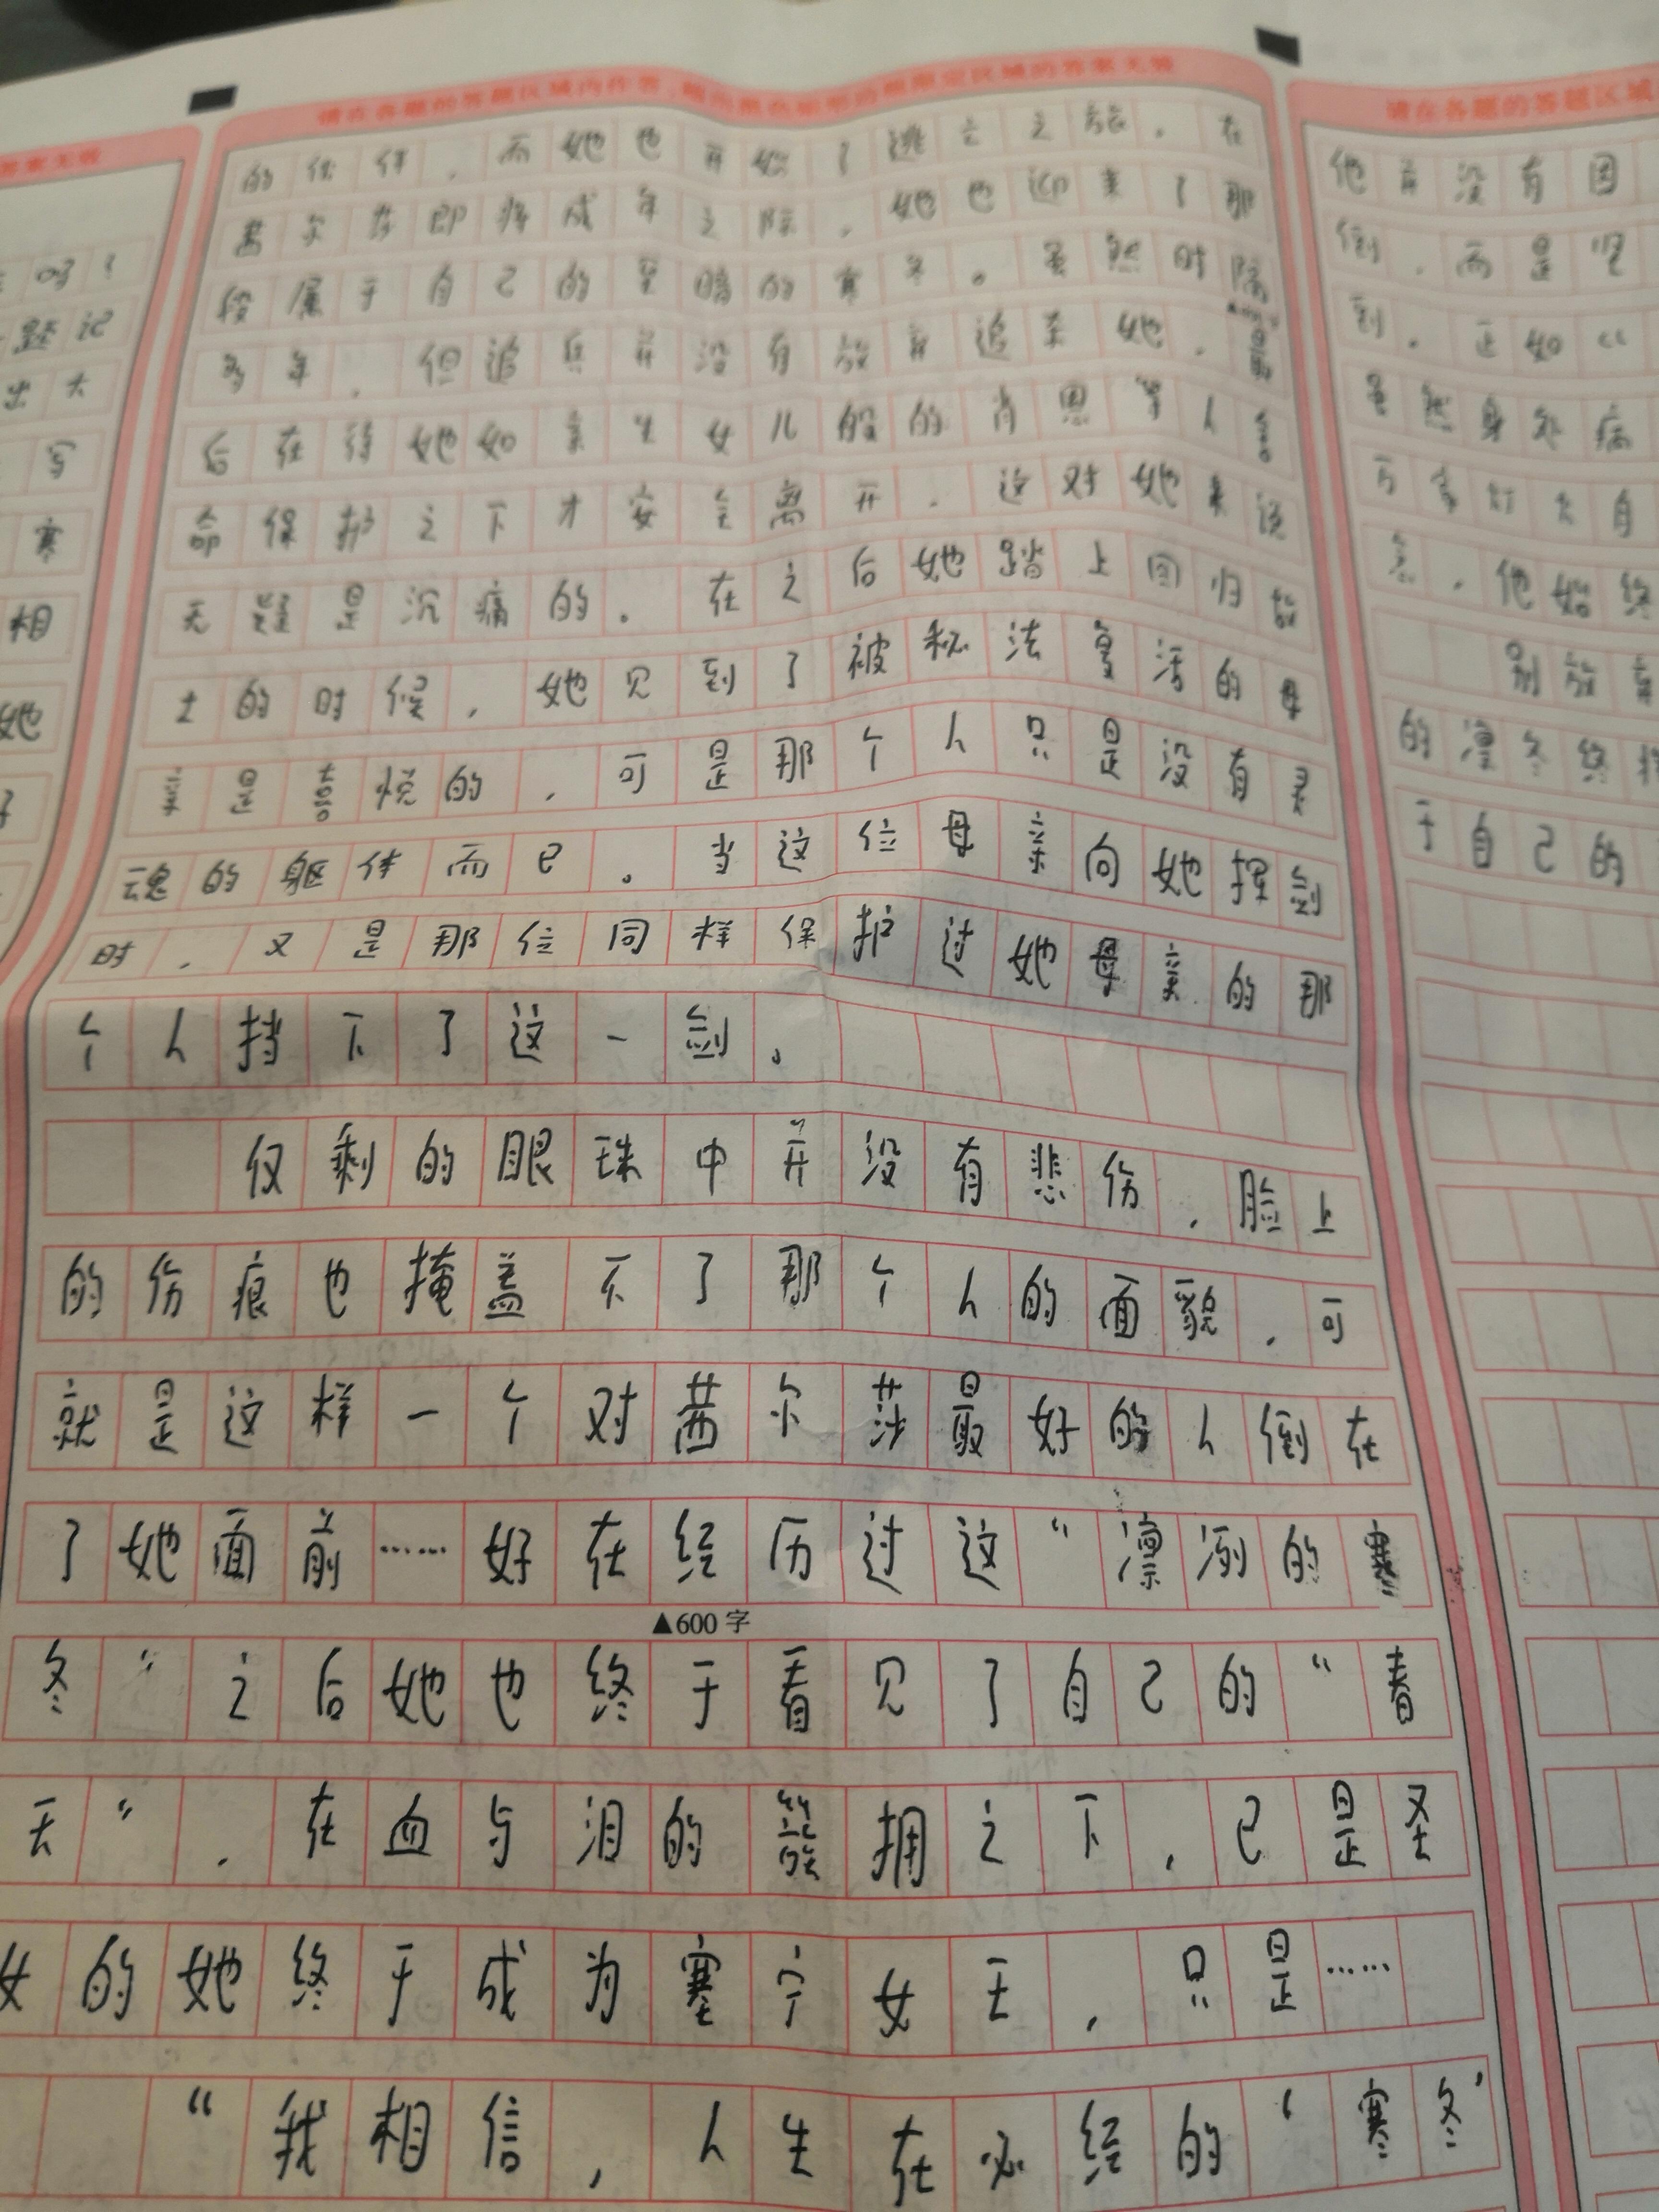 吗？
题记
出大
写
寒
相
她
请在各题的答题区域内作答，超出黑色矩形边框限定区域的答案无效
的伙伴，而她也开始了逃亡之旅。在
茜尔莎即将成年之际，她也迎来了那
段属于自己的至暗的寒冬。虽然时隔
多年，但追兵并没有放弃追杀她，最
后在待她如亲生女儿般的肖恩等人舍
命保护之下才安全离开，这对她来说
无疑是沉痛的。在之后她踏上回归故
土的时候，她见到了被秘法复活的母
亲是喜悦的，可是那个人只是没有灵
魂的躯体而已。当这位母亲向她挥剑
时，又是那位同样保护过她母亲的那
个人挡下了这一剑。
仅剩的眼珠中并没有悲伤，脸上
的伤痕也掩盖不了那个人的面貌，可
就是这样一个对茜尔莎最好的人倒在
了她面前……好在经历过这“凛冽的寒
▲600字
冬”之后她也终于看见了自己的“春
天”，在血与泪的簇拥之下，已是圣
女的她终于成为塞宁女王，只是……
“我相信，人生在必经的‘寒冬’
请在各题的答题区域
他并没有因
倒，而是坚
到。正如《
虽然身处病
万家灯火自
，他始终
别放弃
的凛冬终将
于自己的